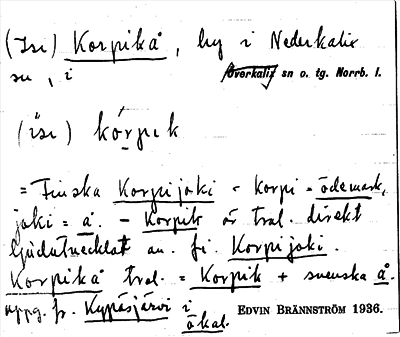 (Isi) Korpikå, by i Nederkalix
sn, i Överkalix sn o. tg. Norrb. l.
(ı̇̄si) kórpık
= Finska Korpijoki - korpi = ödemark,
joki = å. - Korpik är tral. direkt
ljudutvecklat av fi. Korpijoki.
Korpikå tral. = Korpik + svenska å.
uppg. fr. Kypäsjärvi i
ökal. EDVIN BRÄNNSTRÖM 1936.